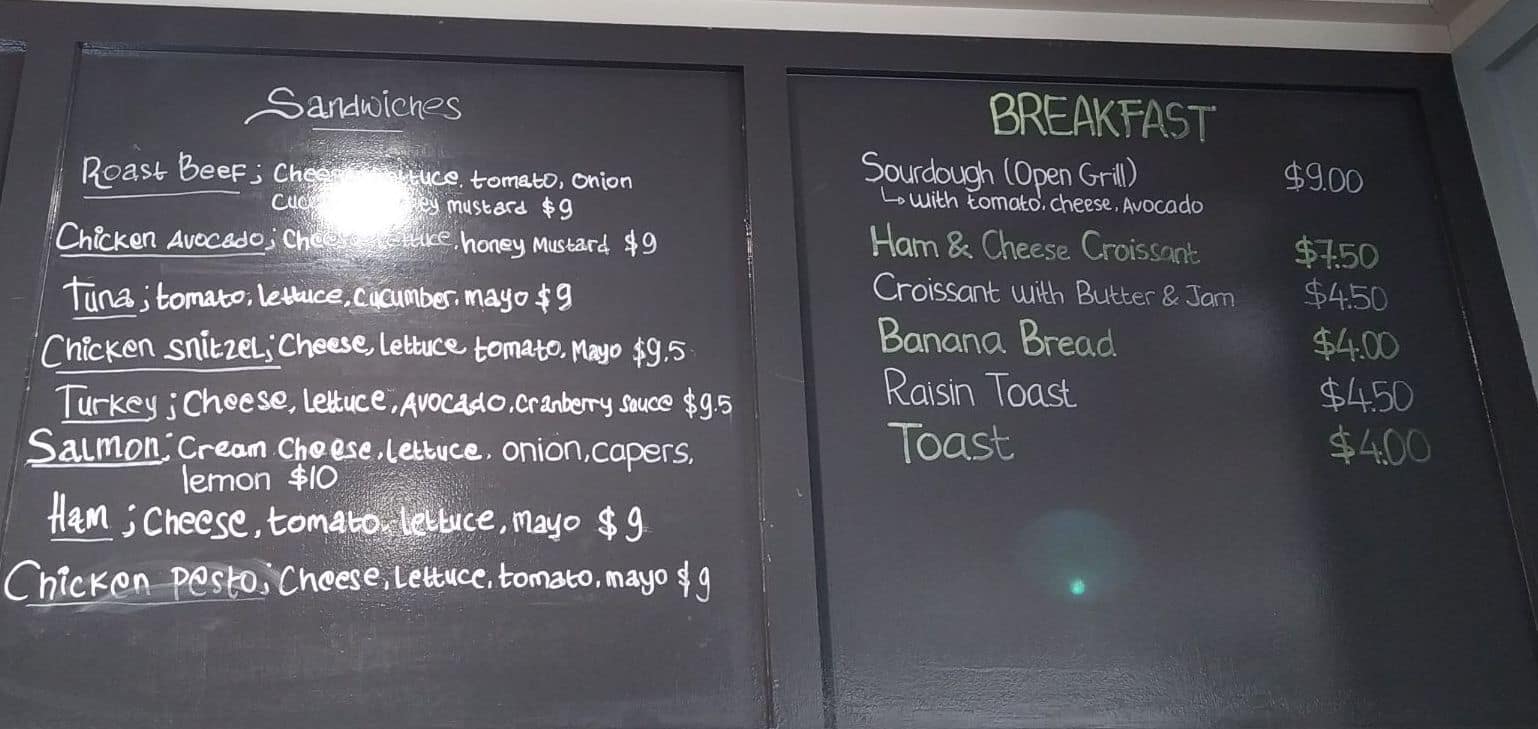 Sandwiches
Roast Beef; tomato, onion
mustard $9
Chicken Avocado; honey Mustard $9
Tuna; tomato, lettuce, cucumber, mayo $9
Chicken snitzel; Cheese, Lettuce tomato, Mayo $9.5
Turkey; Cheese, Lettuce, Avocado, cranberry sauce $9.5
Salmon; Cream Cheese, Lettuce, onion, capers,
lemon $10
Ham; Cheese, tomato, lettuce, mayo $9
Chicken pesto; Cheese, Lettuce, tomato, mayo $9
BREAKFAST
Sourdough (Open Grill) $9.00
↳ with tomato, cheese, Avocado
Ham & Cheese Croissant $7.50
Croissant with Butter & Jam $4.50
Banana Bread $4.00
Raisin Toast $4.50
Toast $4.00